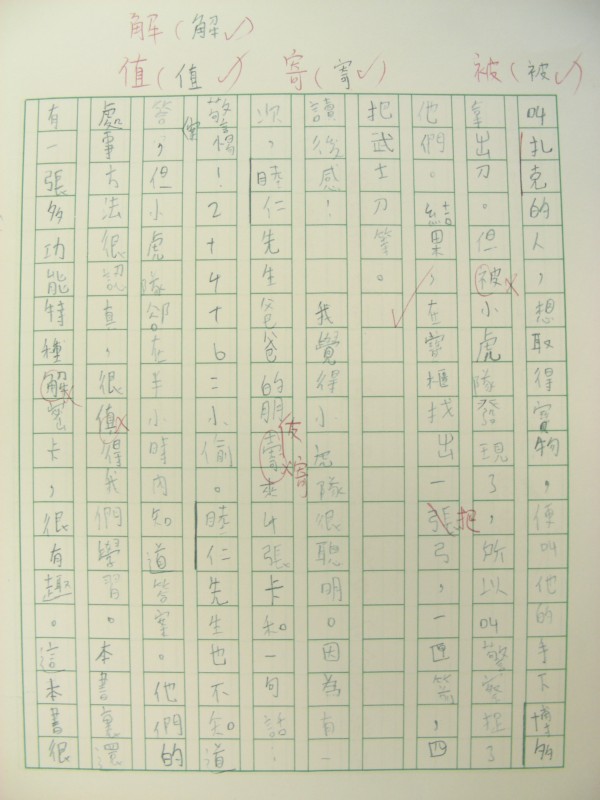 解(解✓)
值(值✓) 寄(寄✓) 被(被✓)
叫扎克的人,想取得寶物,便叫他的手下博多
拿出刀。但被小虎隊發現了,所以叫警察捉了
他們。結果,在寶櫃找出一張弓,一匹箭,四
把
把武士刀等。
讀後感!我覺得小虎隊很聰明。因為有一
次,睦仁先生爸爸的朋寄來4張卡和一句話:
友
寄
警惕!2+4+6=小偷。睦仁先生也不知道
答案,但小虎隊卻在半小時內知道答案。他們的
處事方法很認真,很值得我們學習。本書裏還
有一張多功能特種解密卡,很有趣。這本書很